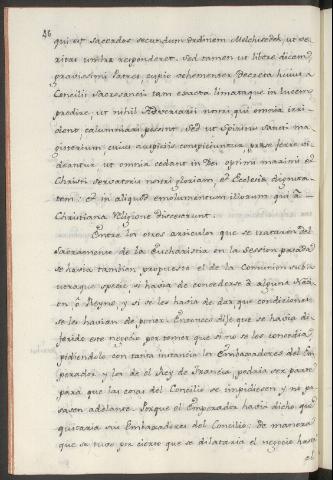 46
qui est Sacerdos secundum ordinem Melchisedek, ut ve-
ritas umbræ responderet. Sed tamen ut libere dicam,
gravissimi Patres, cupio vehementer, decreta huius
Concilii Sacrosancti tam exacta limataque in lucem
prodire, ut nihil Adversarii nostri, qui omnia irri-
dent, calumniari possint. Sed ut Spiritus Sancti ma-
gisterium, cuius auspiciis conspiciuntur, præ se ferre vi-
deantur, ut omnia cedant in Dei optimi maximi et
Christi servatoris nostri gloriam, et Ecclesiæ dignita-
tem: et in aliquod emolumentum illorum, qui a
Christiana Religione dissenserunt.
Entre los otros articulos que se trataron del
Sacramento de la Eucharistia en la Session pasada
se havia tambien propuesto el de la Comunion sub u-
traque specie, si havia de concederse à alguna Naci-
on ò Reyno, y si se les havia de dar que condiciones
se les havian de poner. Entonces dije que se havia di-
ferido este negocio por temor que si no se les concedia
pidiendolo con tanta instancia los Embaxadores del Em-
perador y los de el Rey de Francia, podria ser parte
para que las cosas del Concilio se impidiesen y no pa-
sasen adelante. Porque el Emperador havia dicho que
quitaria sus Embaxadores del Concilio: de manera
que se tuvo por cierto que se dilataria el negocio hasta
el